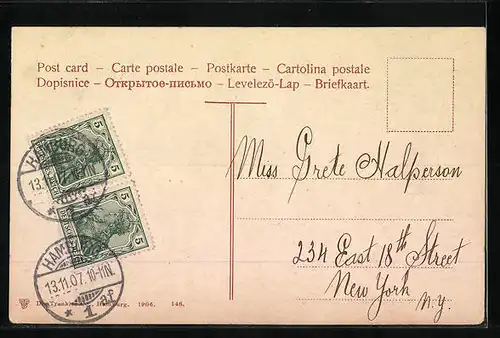 Post card – Carte postale – Postkarte – Cartolina postale
Dopisnice – Открытое-письмо – Levelező-Lap – Briefkaart.
5
HAMBURG
13.
5
HAMBURG
13.11.07. 10-11N.
* 1
Miss Grete Halperson
234 East 18th Street
New York
N.Y.
Hamburg. 1906. 146.